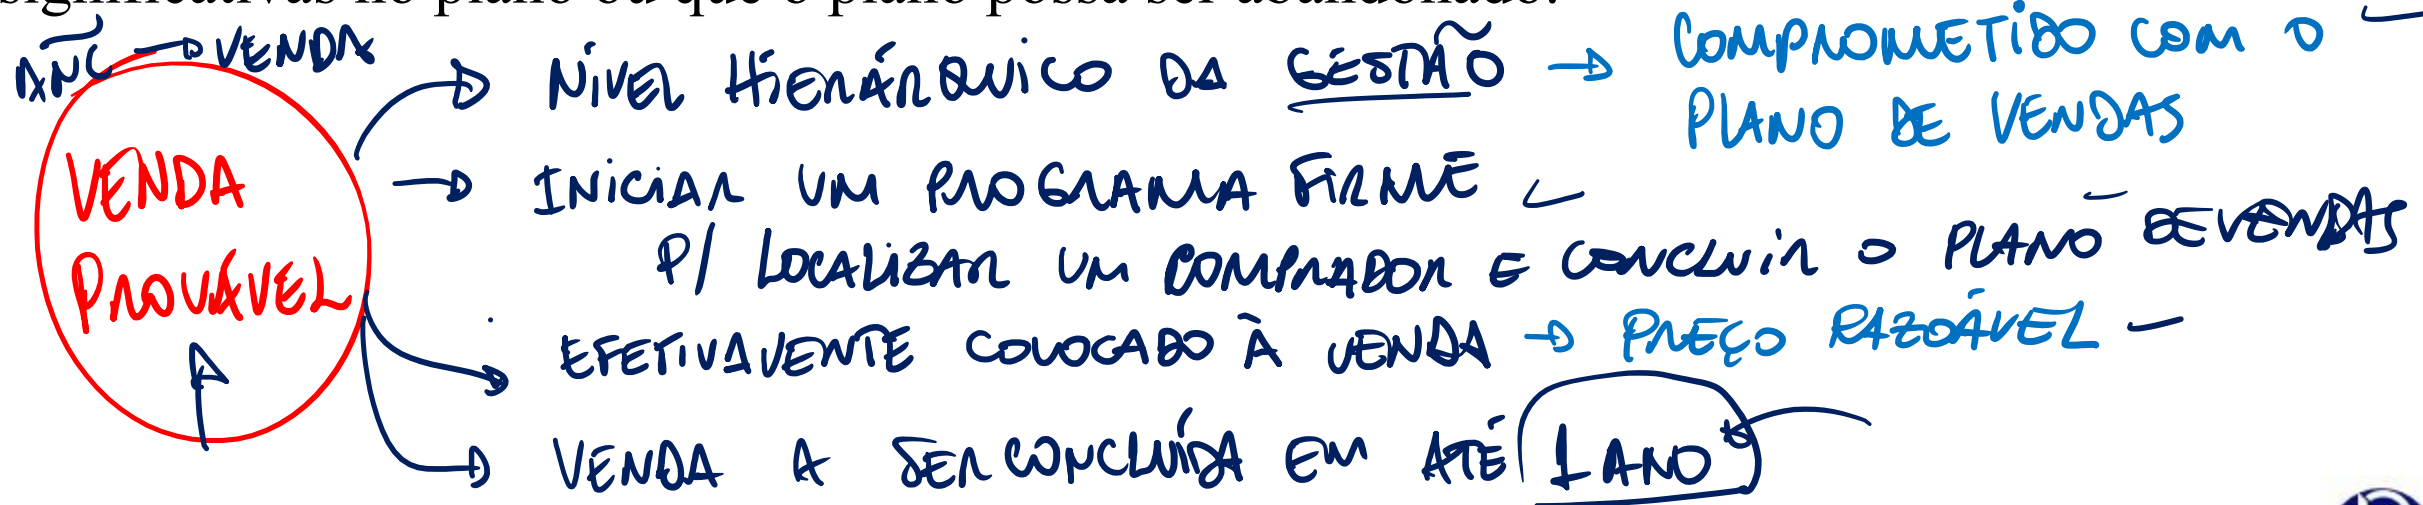 significativas no plano ou que o plano possa ser abandonado.
ANC → VENDA
VENDA PROVÁVEL
→ NÍVEL HIERÁRQUICO DA GESTÃO → COMPROMETIDO COM O PLANO DE VENDAS
→ INICIAR UM PROGRAMA FIRME
P/ LOCALIZAR UM COMPRADOR E CONCLUIR O PLANO DE VENDAS
→ EFETIVAMENTE COLOCADO À VENDA → PREÇO RAZOÁVEL
→ VENDA A SER CONCLUÍDA EM ATÉ 1 ANO